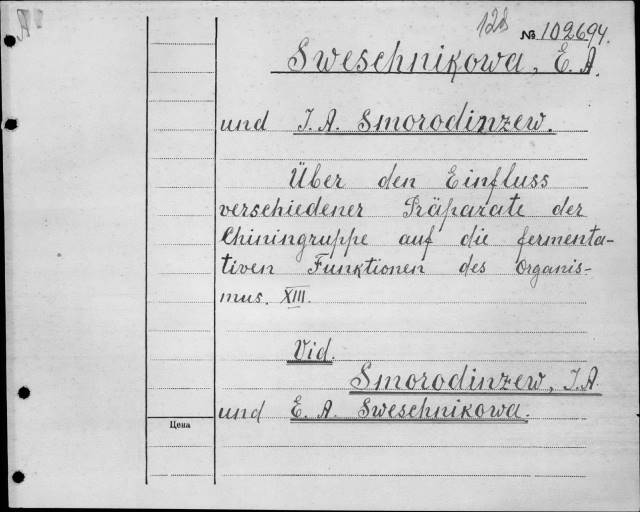 128
№ 102694.
Sweschnikowa, E. A.
und J. A. Smorodinzew.
Über den Einfluss
verschiedener Präparate der
Chiningruppe auf die fermenta-
tiven Funktionen des Organis-
mus. XIII.
Vid.
Smorodinzew, J. A.
und E. A. Sweschnikowa.
Цена